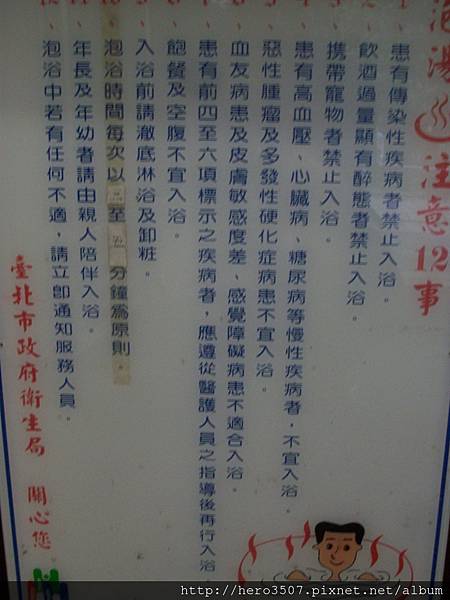 泡湯♨注意12事
1 患有傳染性疾病者禁止入浴。
飲酒過量顯有醉態者禁止入浴。
攜帶寵物者禁止入浴。
患有高血壓、心臟病、糖尿病等慢性疾病者，不宜入浴。
惡性腫瘤及多發性硬化症病患不宜入浴。
血友病患及皮膚敏感度差、感覺障礙病患不適合入浴。
患有前四至六項標示之疾病者，應遵從醫護人員之指導後再行入浴
飽餐及空腹不宜入浴。
入浴前請澈底淋浴及卸粧。
泡浴時間每次以三至五分鐘為原則。
年長及年幼者請由親人陪伴入浴。
泡浴中若有任何不適，請立即通知服務人員。
臺北市政府衛生局 關心您
http://hero3507.pixnet.net/album